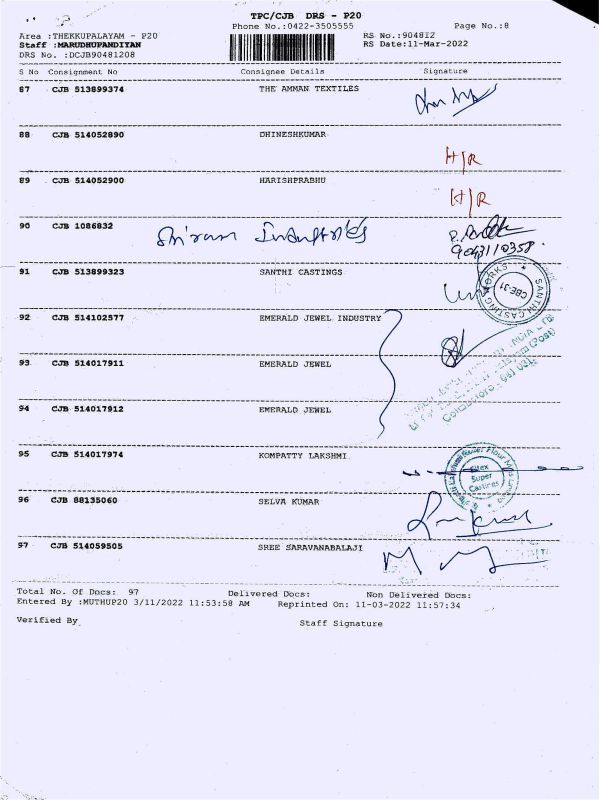 TPC/CJB DRS - P20
Phone No.:0422-3505555
Page No.:8
Area :THEKKUPALAYAM - P20
RS No.:9048I2
Staff :MARUDHUPANDIYAN
RS Date:11-Mar-2022
DRS No. :DCJB90481208
S No Consignment No Consignee Details Signature
87 CJB 513899374 THE AMMAN TEXTILES
88 CJB 514052890 DHINESHKUMAR
H/R
89 CJB 514052900 HARISHPRABHU
H/R
90 CJB 1086832 Shriram Industries
9043110358
91 CJB 513899323 SANTHI CASTINGS
SANTHI CASTING WORKS
CBE-31
92 CJB 514102577 EMERALD JEWEL INDUSTRY
93 CJB 514017911 EMERALD JEWEL
94 CJB 514017912 EMERALD JEWEL
95 CJB 514017974 KOMPATTY LAKSHMI
Super
Castings
96 CJB 88135060 SELVA KUMAR
97 CJB 514059505 SREE SARAVANABALAJI
Total No. Of Docs: 97 Delivered Docs: Non Delivered Docs:
Entered By :MUTHUP20 3/11/2022 11:53:58 AM Reprinted On: 11-03-2022 11:57:34
Verified By Staff Signature